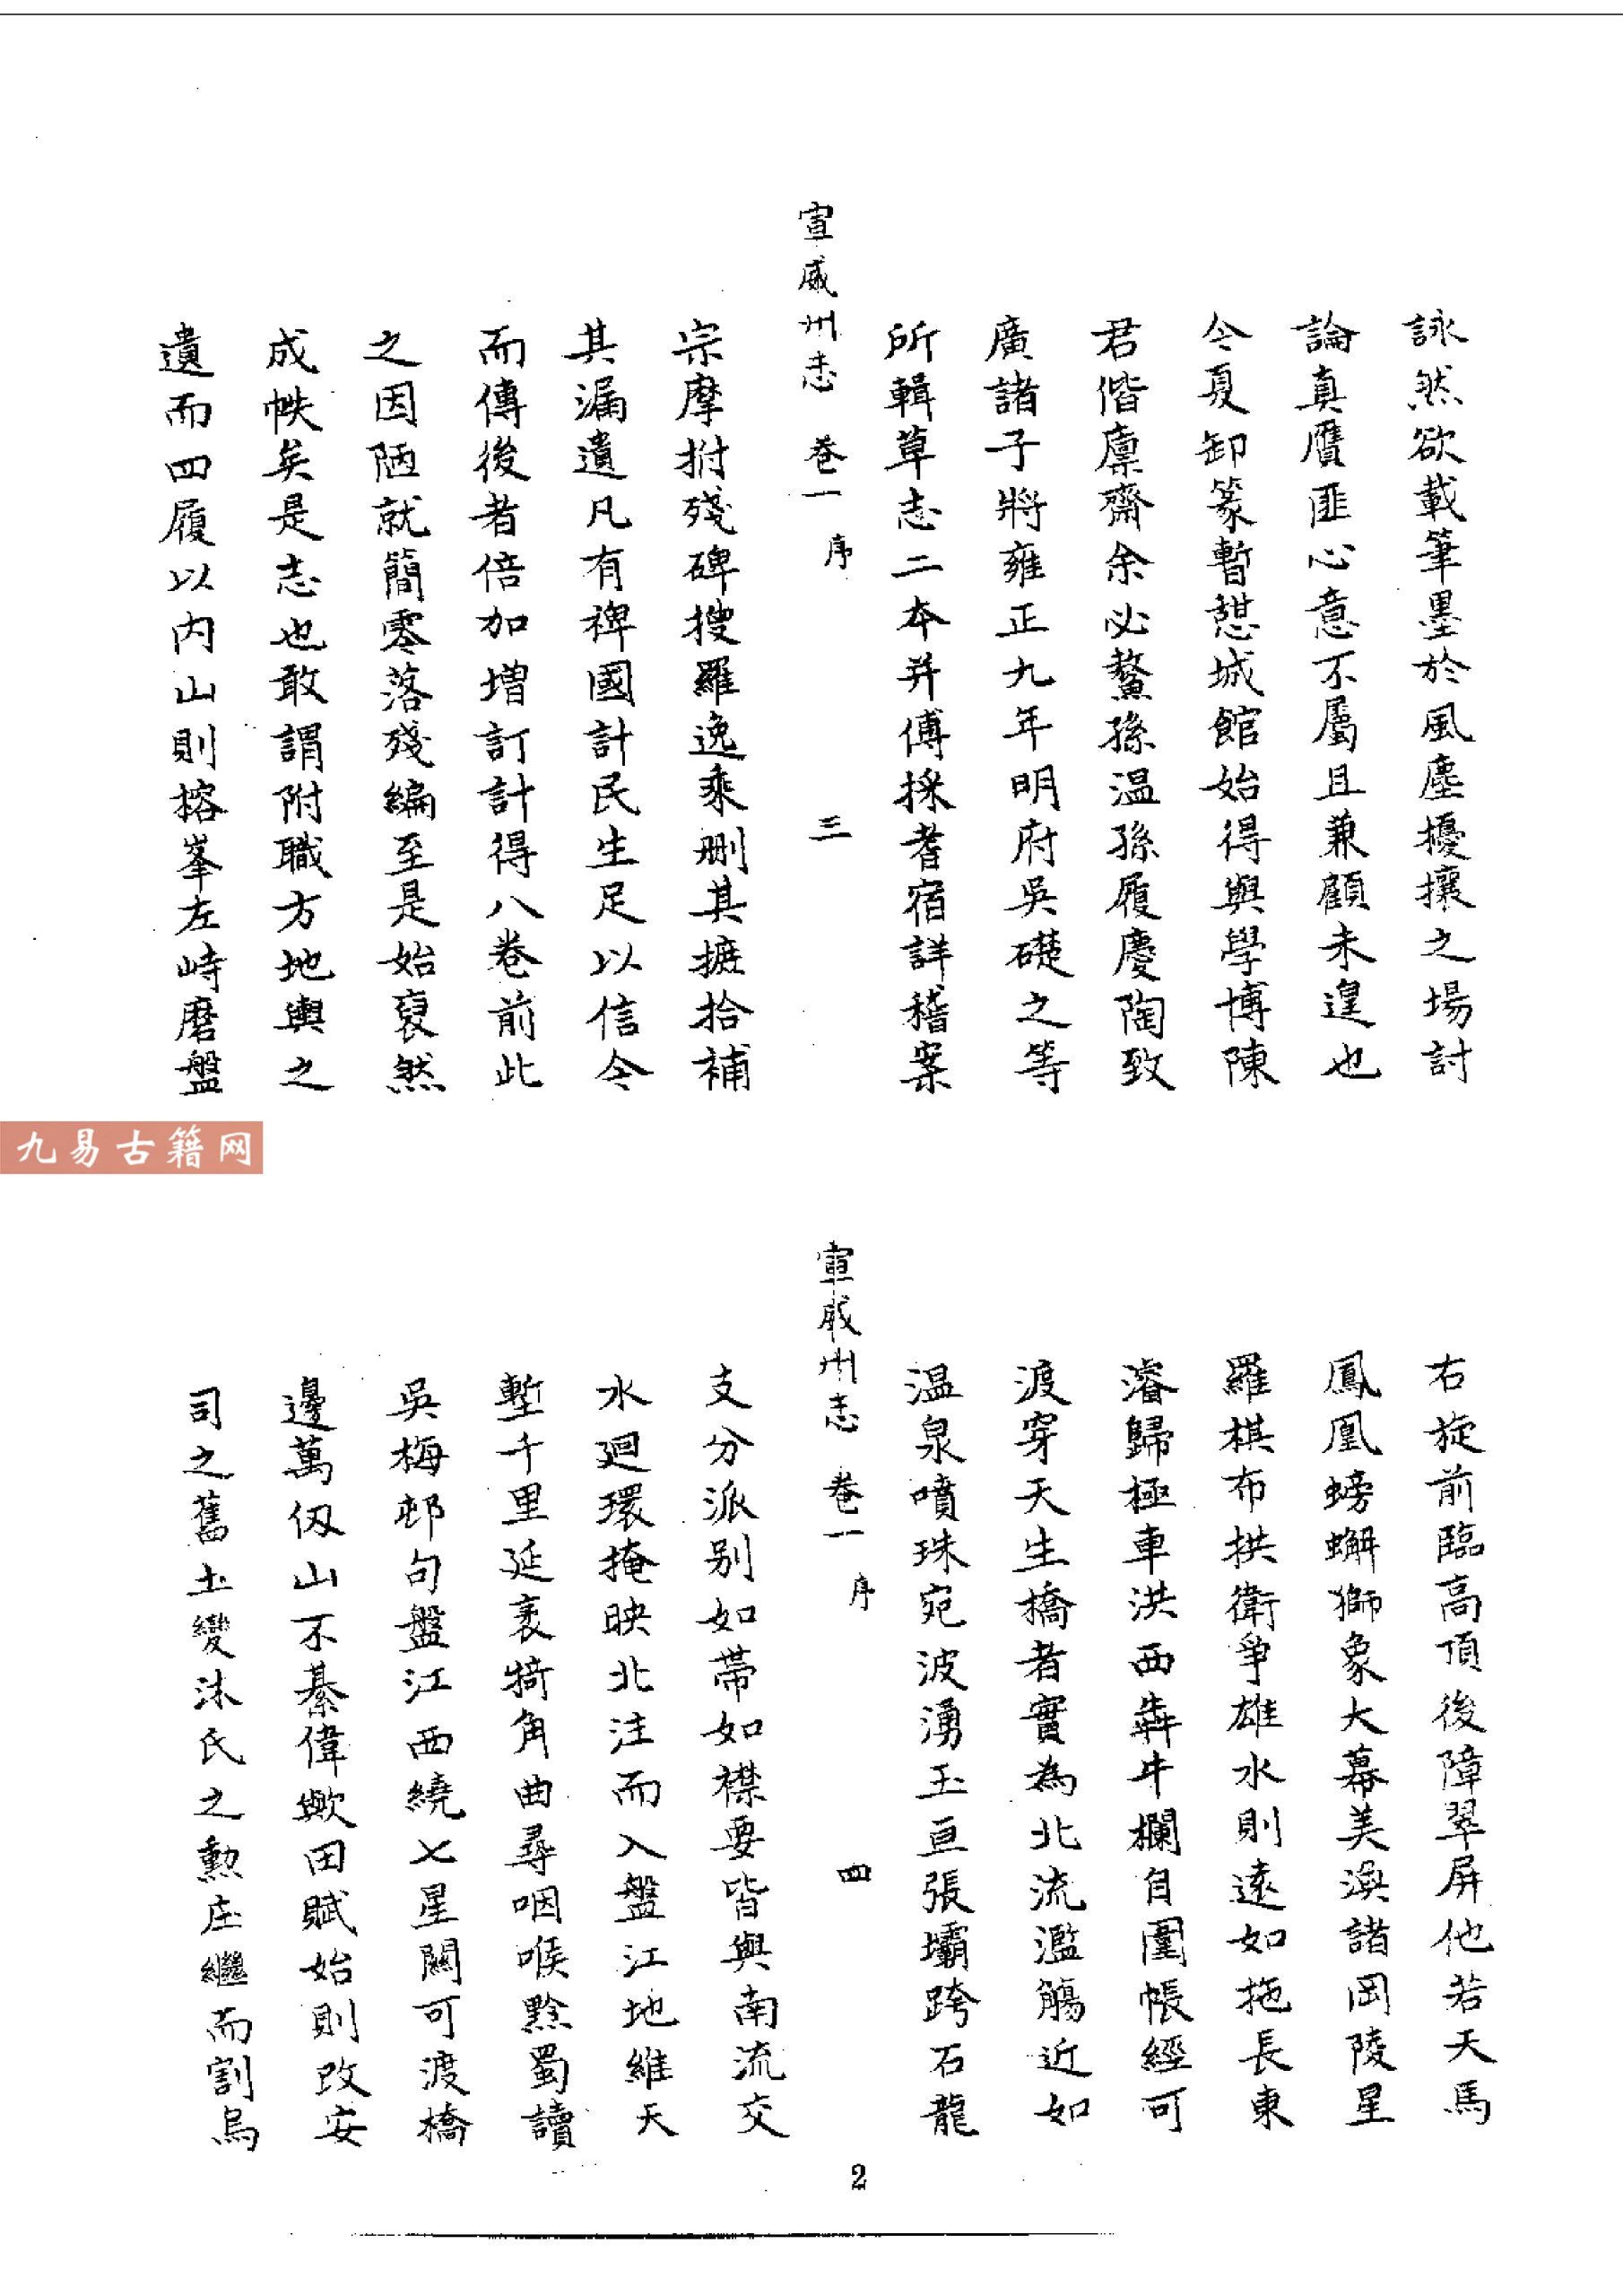 詠然欲載筆墨於風塵擾攘之場討
論真贋匪心意不屬且兼顧未遑也
今夏卸篆暫憇城館始得與學博陳
君偕廩齋余必鰲孫温孫履慶陶致
廣諸子將雍正九年明府吳礎之等
所輯草志二本并傅採耆宿詳稽案
宣威州志 卷一 序 三
宗摩拊殘碑搜羅逸乘刪其摭拾補
其漏遺凡有裨國計民生足以信今
而傳後者倍加增訂計得八卷前此
之因陋就簡零落殘編至是始裒然
成帙矣是志也敢謂附職方地輿之
遺而四履以內山則榕峯左峙磨盤
九易古籍网
右旋前臨高頂後障翠屏他若天馬
鳳凰螃蠏獅象大幕美渙諸岡陵星
羅棋布拱衛爭雄水則遠如拖長東
濬歸極車洪西犇牛欄自圍帳經可
渡穿天生橋者實為北流濫觴近如
温泉噴珠宛波湧玉亘張壩跨石龍
宣威州志 卷一 序 四
支分派别如帶如襟要皆與南流交
水廻環掩映北注而入盤江地維天
塹千里延袤犄角曲尋咽喉黔蜀讀
吳梅邨句盤江西繞七星關可渡橋
邊萬仞山不綦偉歟田賦始則改安
司之舊土變沐氏之勲庄繼而割烏
2